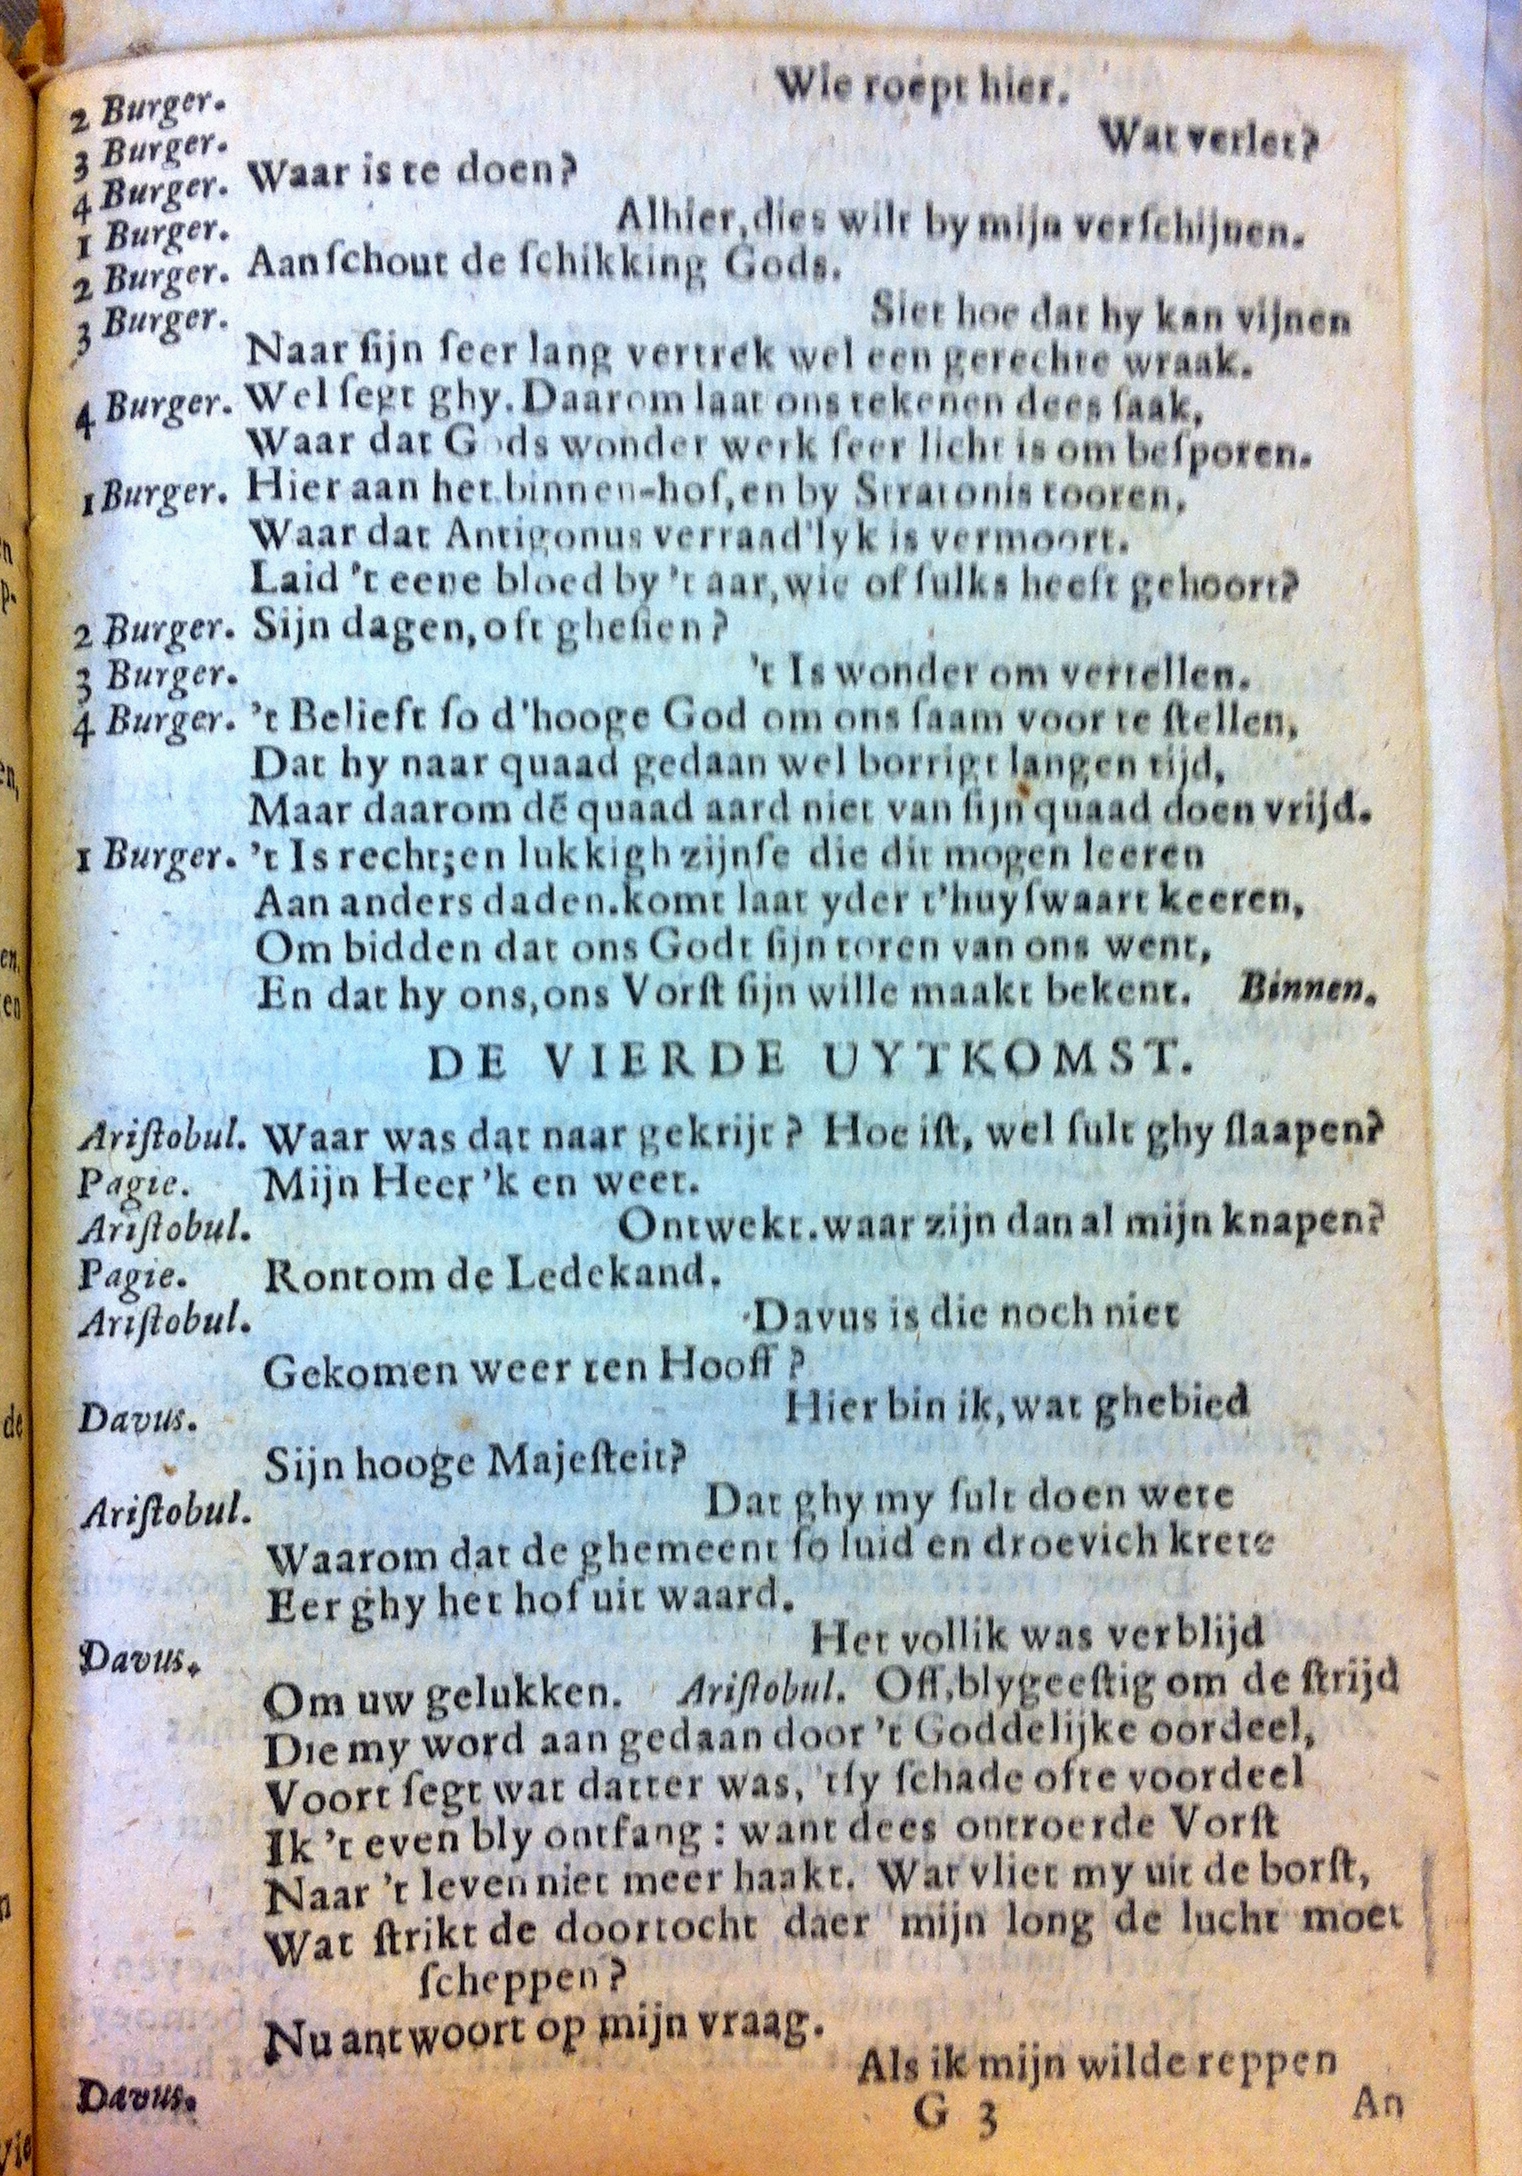 2 Burger. Wie roept hier.
3 Burger. Wat verlet?
4 Burger. Waar is te doen?
1 Burger. Alhier, dies wilt by mijn verſchijnen.
2 Burger. Aanſchout de ſchikking Gods.
3 Burger. Siet hoe dat hy kan vijnen
Naar ſijn ſeer lang vertrek wel een gerechte wraak.
4 Burger. Wel ſegt ghy. Daarom laat ons tekenen dees ſaak,
Waar dat Gods wonder werk ſeer licht is om beſporen.
1 Burger. Hier aan het binnen-hof, en by Stratonis tooren,
Waar dat Antigonus verraad'lyk is vermoort.
Laid 't eene bloed by 't aar, wie of ſulks heeft gehoort?
2 Burger. Sijn dagen, oft gheſien?
3 Burger. 't Is wonder om vertellen.
4 Burger. 't Belieft ſo d'hooge God om ons ſaam voor te ſtellen,
Dat hy naar quaad gedaan wel borrigt langen tijd,
Maar daarom dē quaad aard niet van ſijn quaad doen vrijd.
1 Burger. 't Is recht; en lukkigh zijnſe die dit mogen leeren
Aan anders daden. komt laat yder t'huyſwaart keeren,
Om bidden dat ons Godt ſijn toren van ons went,
En dat hy ons, ons Vorſt ſijn wille maakt bekent. Binnen.
DE VIERDE UYTKOMST.
Ariſtobul. Waar was dat naar gekrijt? Hoe iſt, wel ſult ghy ſlaapen?
Pagie. Mijn Heer 'k en weet.
Ariſtobul. Ontwekt. waar zijn dan al mijn knapen?
Pagie. Rontom de Ledekand.
Ariſtobul. Davus is die noch niet
Gekomen weer ten Hooff?
Davus. Hier bin ik, wat ghebied
Sijn hooge Majeſteit?
Ariſtobul. Dat ghy my ſult doen wete
Waarom dat de ghemeent ſo luid en droevich krete
Eer ghy het hof uit waard.
Davus. Het vollik was verblijd
Om uw gelukken. Ariſtobul. Off, blygeeſtig om de ſtrijd
Die my word aan gedaan door 't Goddelijke oordeel,
Voort ſegt wat datter was, 'tſy ſchade ofte voordeel
Ik 't even bly ontfang : want dees ontroerde Vorſt
Naar 't leven niet meer haakt. Wat vliet my uit de borſt,
Wat ſtrikt de doortocht daer mijn long de lucht moet
ſcheppen?
Nu antwoort op mijn vraag.
Davus. Als ik mijn wilde reppen
G 3 An